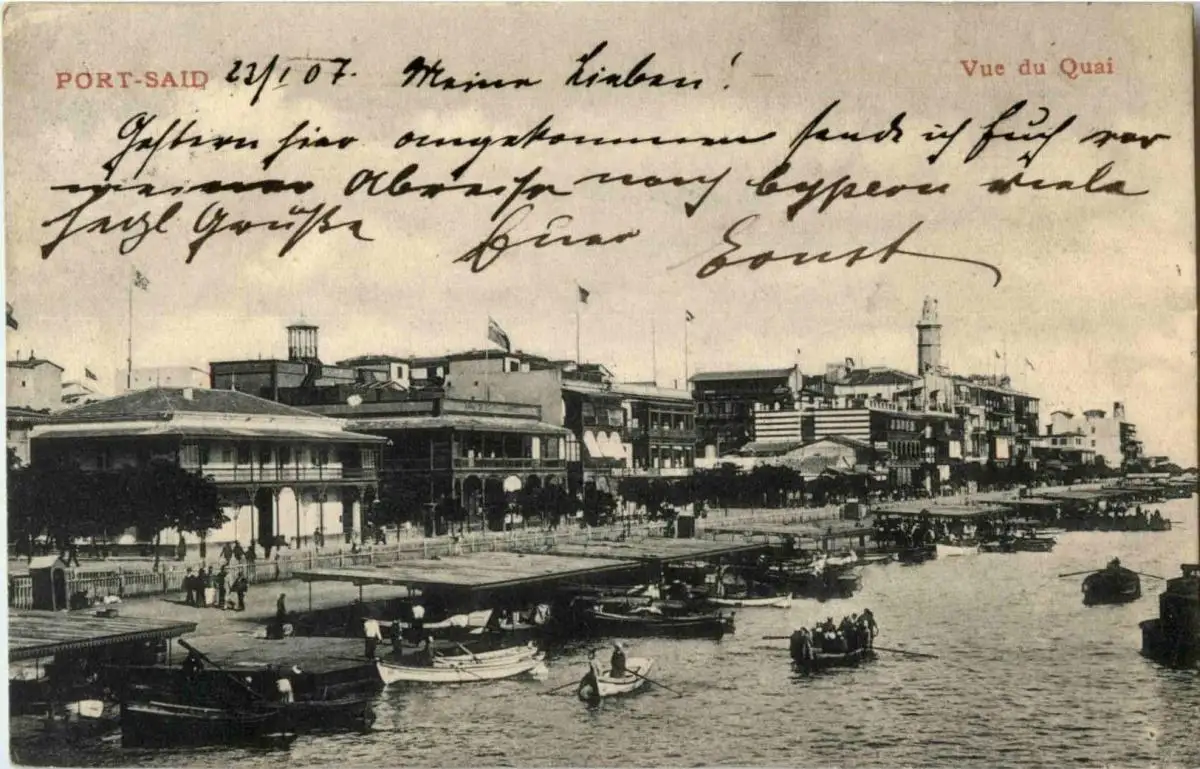 PORT-SAID 23/I 07. Meine Lieben! Vue du Quai
Gestern hier angekommen sende ich Euch vor
meiner Abreise nach Cypern viele
herzl Grüße Euer Ernst